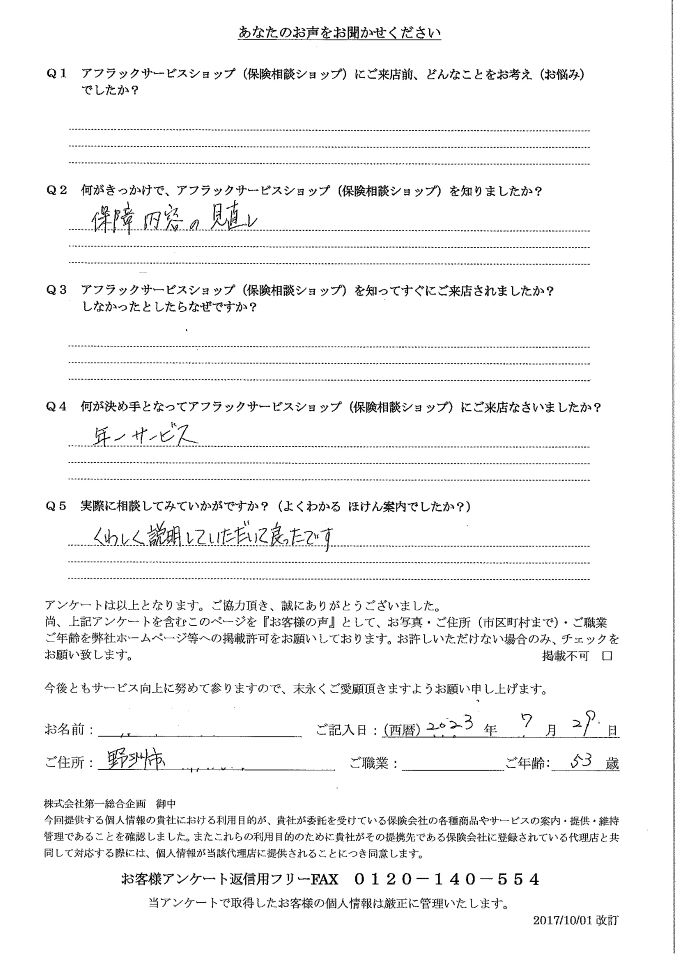 あなたのお声をお聞かせください
Q1 アフラックサービスショップ（保険相談ショップ）にご来店前、どんなことをお考え（お悩み）
でしたか？
Q2 何がきっかけで、アフラックサービスショップ（保険相談ショップ）を知りましたか？
保障内容の見直し
Q3 アフラックサービスショップ（保険相談ショップ）を知ってすぐにご来店されましたか？
しなかったとしたらなぜですか？
Q4 何が決め手となってアフラックサービスショップ（保険相談ショップ）にご来店なさいましたか？
年一サービス
Q5 実際に相談してみていかがですか？（よくわかる ほけん案内でしたか？）
くわしく説明していただいて良ったです
アンケートは以上となります。ご協力頂き、誠にありがとうございました。
尚、上記アンケートを含むこのページを『お客様の声』として、お写真・ご住所（市区町村まで）・ご職業
ご年齢を弊社ホームページ等への掲載許可をお願いしております。お許しいただけない場合のみ、チェックを
お願い致します。 掲載不可 □
今後ともサービス向上に努めて参りますので、末永くご愛顧頂きますようお願い申し上げます。
お名前： ご記入日：(西暦) 2023 年 7 月 29 日
ご住所： 野洲市 ご職業： ご年齢： 53 歳
株式会社第一総合企画 御中
今回提供する個人情報の貴社における利用目的が、貴社が委託を受けている保険会社の各種商品やサービスの案内・提供・維持
管理であることを確認しました。またこれらの利用目的のために貴社がその提携先である保険会社に登録されている代理店と共
同して対応する際には、個人情報が当該代理店に提供されることにつき同意します。
お客様アンケート返信用フリーFAX 0120－140－554
当アンケートで取得したお客様の個人情報は厳正に管理いたします。
2017/10/01 改訂